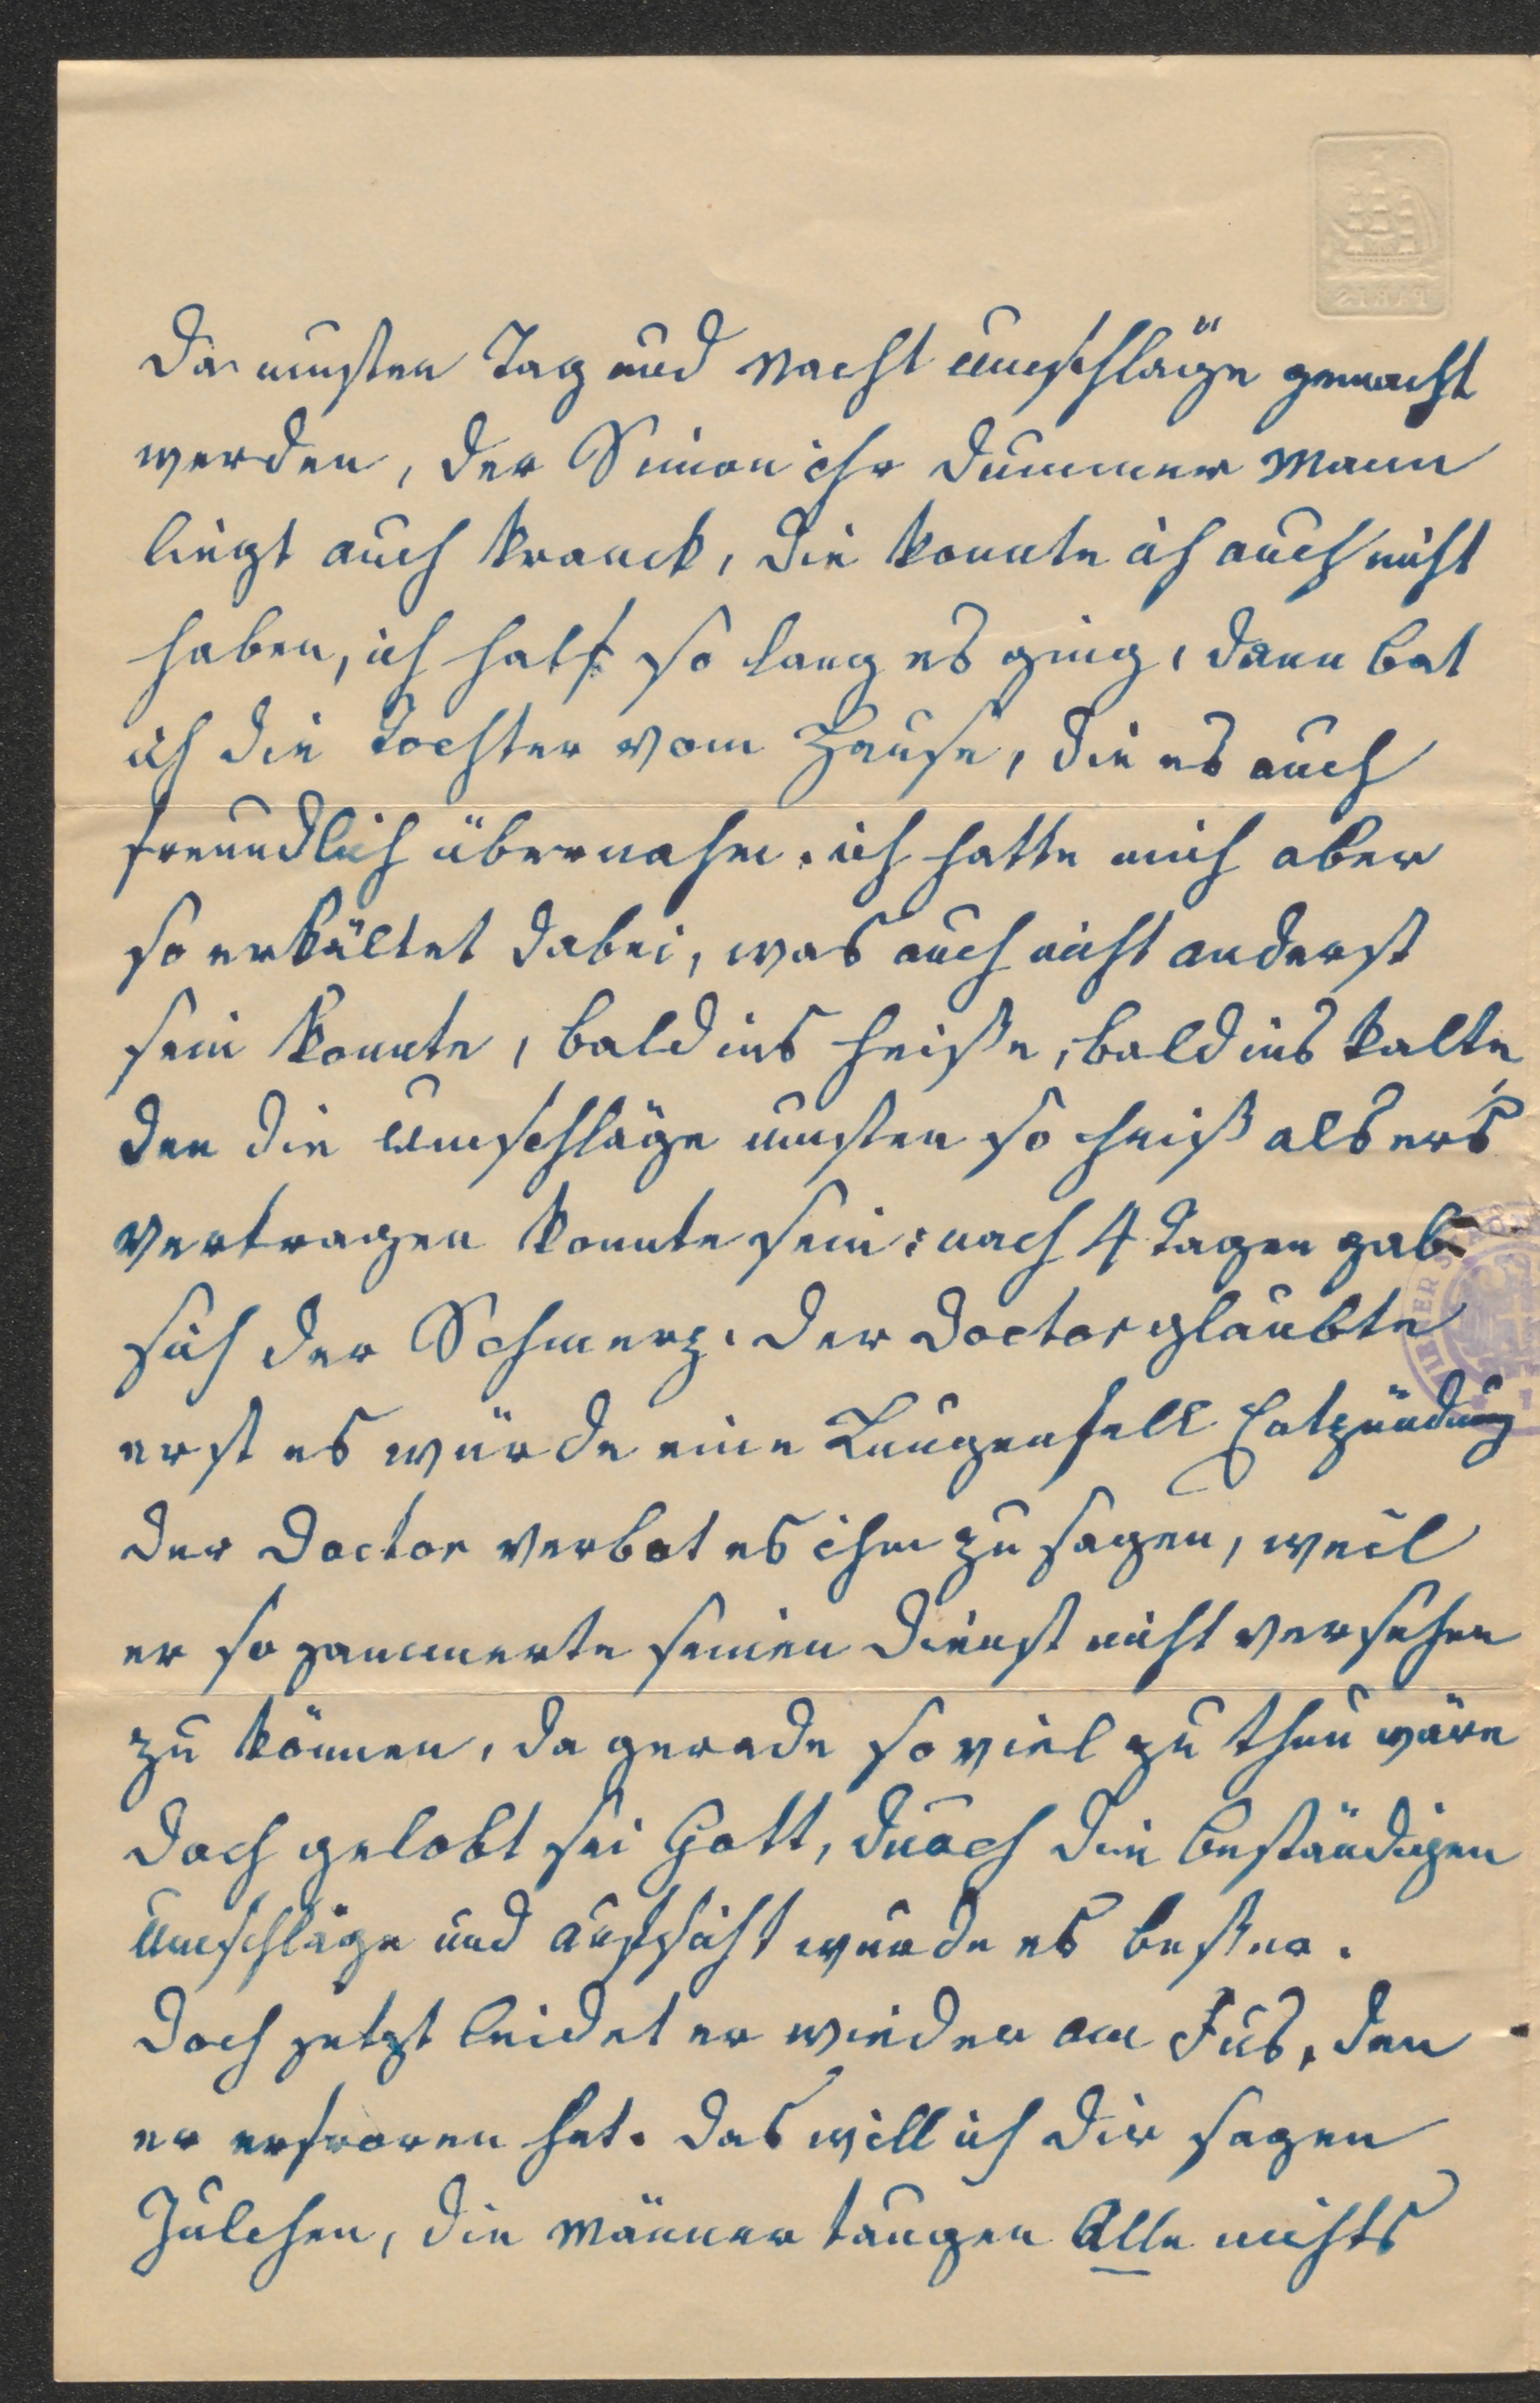 Da musten Tag und Nacht Umschläge gemacht
werden, der Simon ihr dummer Mann
liegt auch kranck, die konnte ich auch nicht
haben, ich half so lang es ging, dann bat
ich die Tochter vom Hause, die es auch
freundlich übernahm. ich hatte mich aber
so erkältet dabei, was auch nicht anderst
sein konnte, bald ins heiße, bald ins kalte
den die Umschläge musten so heiß als ers
vertragen konnte sein; nach 4 Tagen gab
sich der Schmerz. der Doctor glaubte
erst es würde eine Lungenfell Entzündung
der Doctor verbot es ihm zu sagen, weil
er so jammerte seinen Dienst nicht versehen
zu können, da gerade so viel zu thun wäre
doch gelobt sei Gott, durch die beständigen
Umschläge und Aufsicht wurde es beßer.
Doch jetzt leidet er wieder am Fus, den
er erfroren hat. das will ich dir sagen
Julchen, die Männer taugen Alle nichts
PARIS